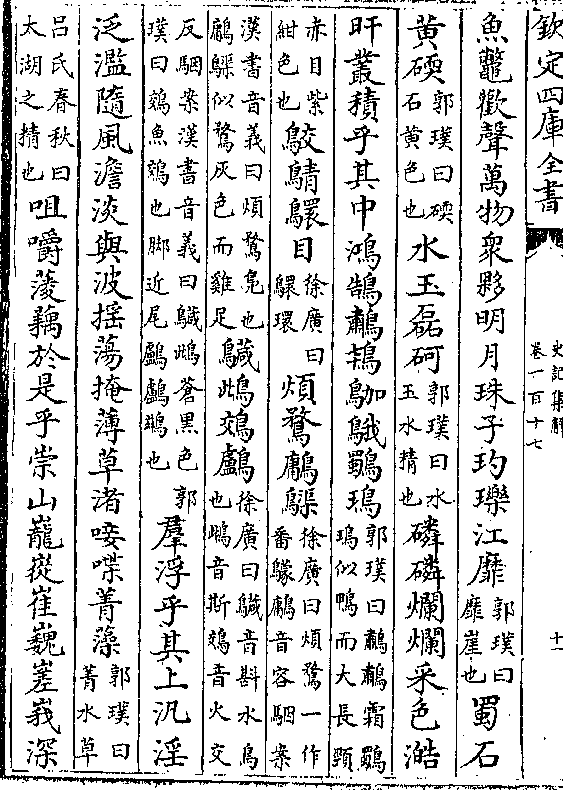 欽定四庫全書
史記集解
卷一百十七
十一
魚鼈歡聲萬物衆夥明月珠子玓瓅江靡郭璞曰靡崖也蜀石
黄碝郭璞曰碝石黄色也水玉磊砢郭璞曰水玉水精也磷磷爛爛采色澔
旰叢積乎其中鴻鵠鷫鴇鴐鵞鸀鳿郭璞曰鷫鷫霜鸀鳿似鴨而大長頸
赤目紫紺色也鵁鶄䴉目徐廣曰䴉環煩鶩鷛䴋徐廣曰煩鶩一作番䳱鷛音容駰案
漢書音義曰煩鶩鳧也鷛䴋似鶩灰色而雞足䴄鴜鵁鸕徐廣曰䴄音斟水鳥也鴜音斯鵁音火交
反駰案漢書音義曰䴄鴜蒼黑色郭璞曰鵁魚鵁也脚近尾鸕鸕鷀也羣浮乎其上汎淫
泛濫隨風澹淡與波揺蕩掩薄草渚唼喋菁藻郭璞曰菁水草
呂氏春秋曰太湖之精也咀嚼蔆藕於是乎崇山巃嵸崔巍嵳峩深